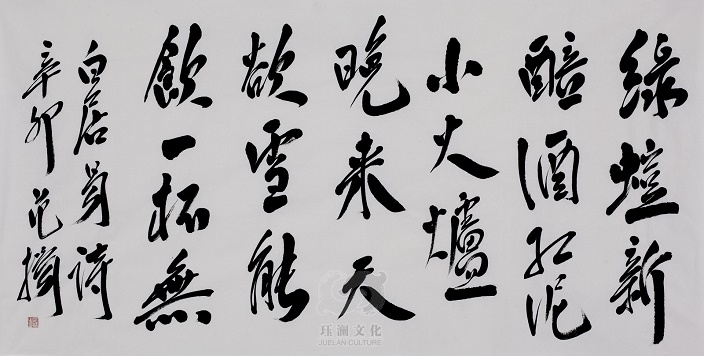 綠螘新
醅酒红泥
小火爐
晚来天
欲雪能
飲一杯無
白居易詩
辛卯范
珏澜文化
JUELAN CULTURE